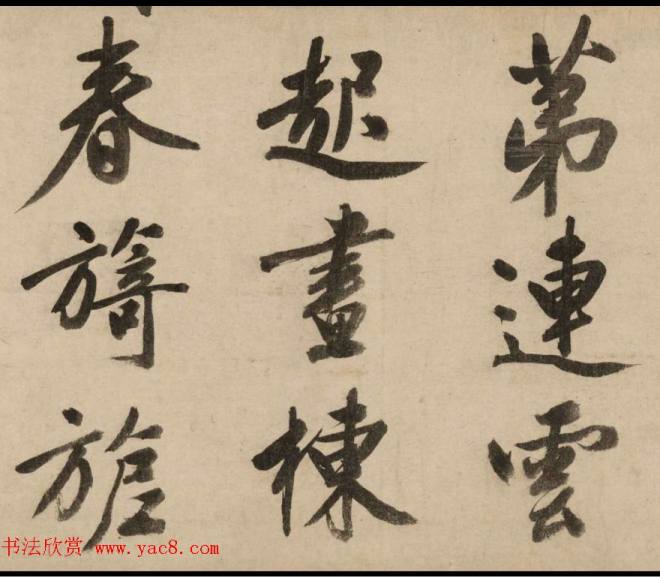 苐連雲
起畫棟
春旖旎
书法欣赏 www.yac8.com